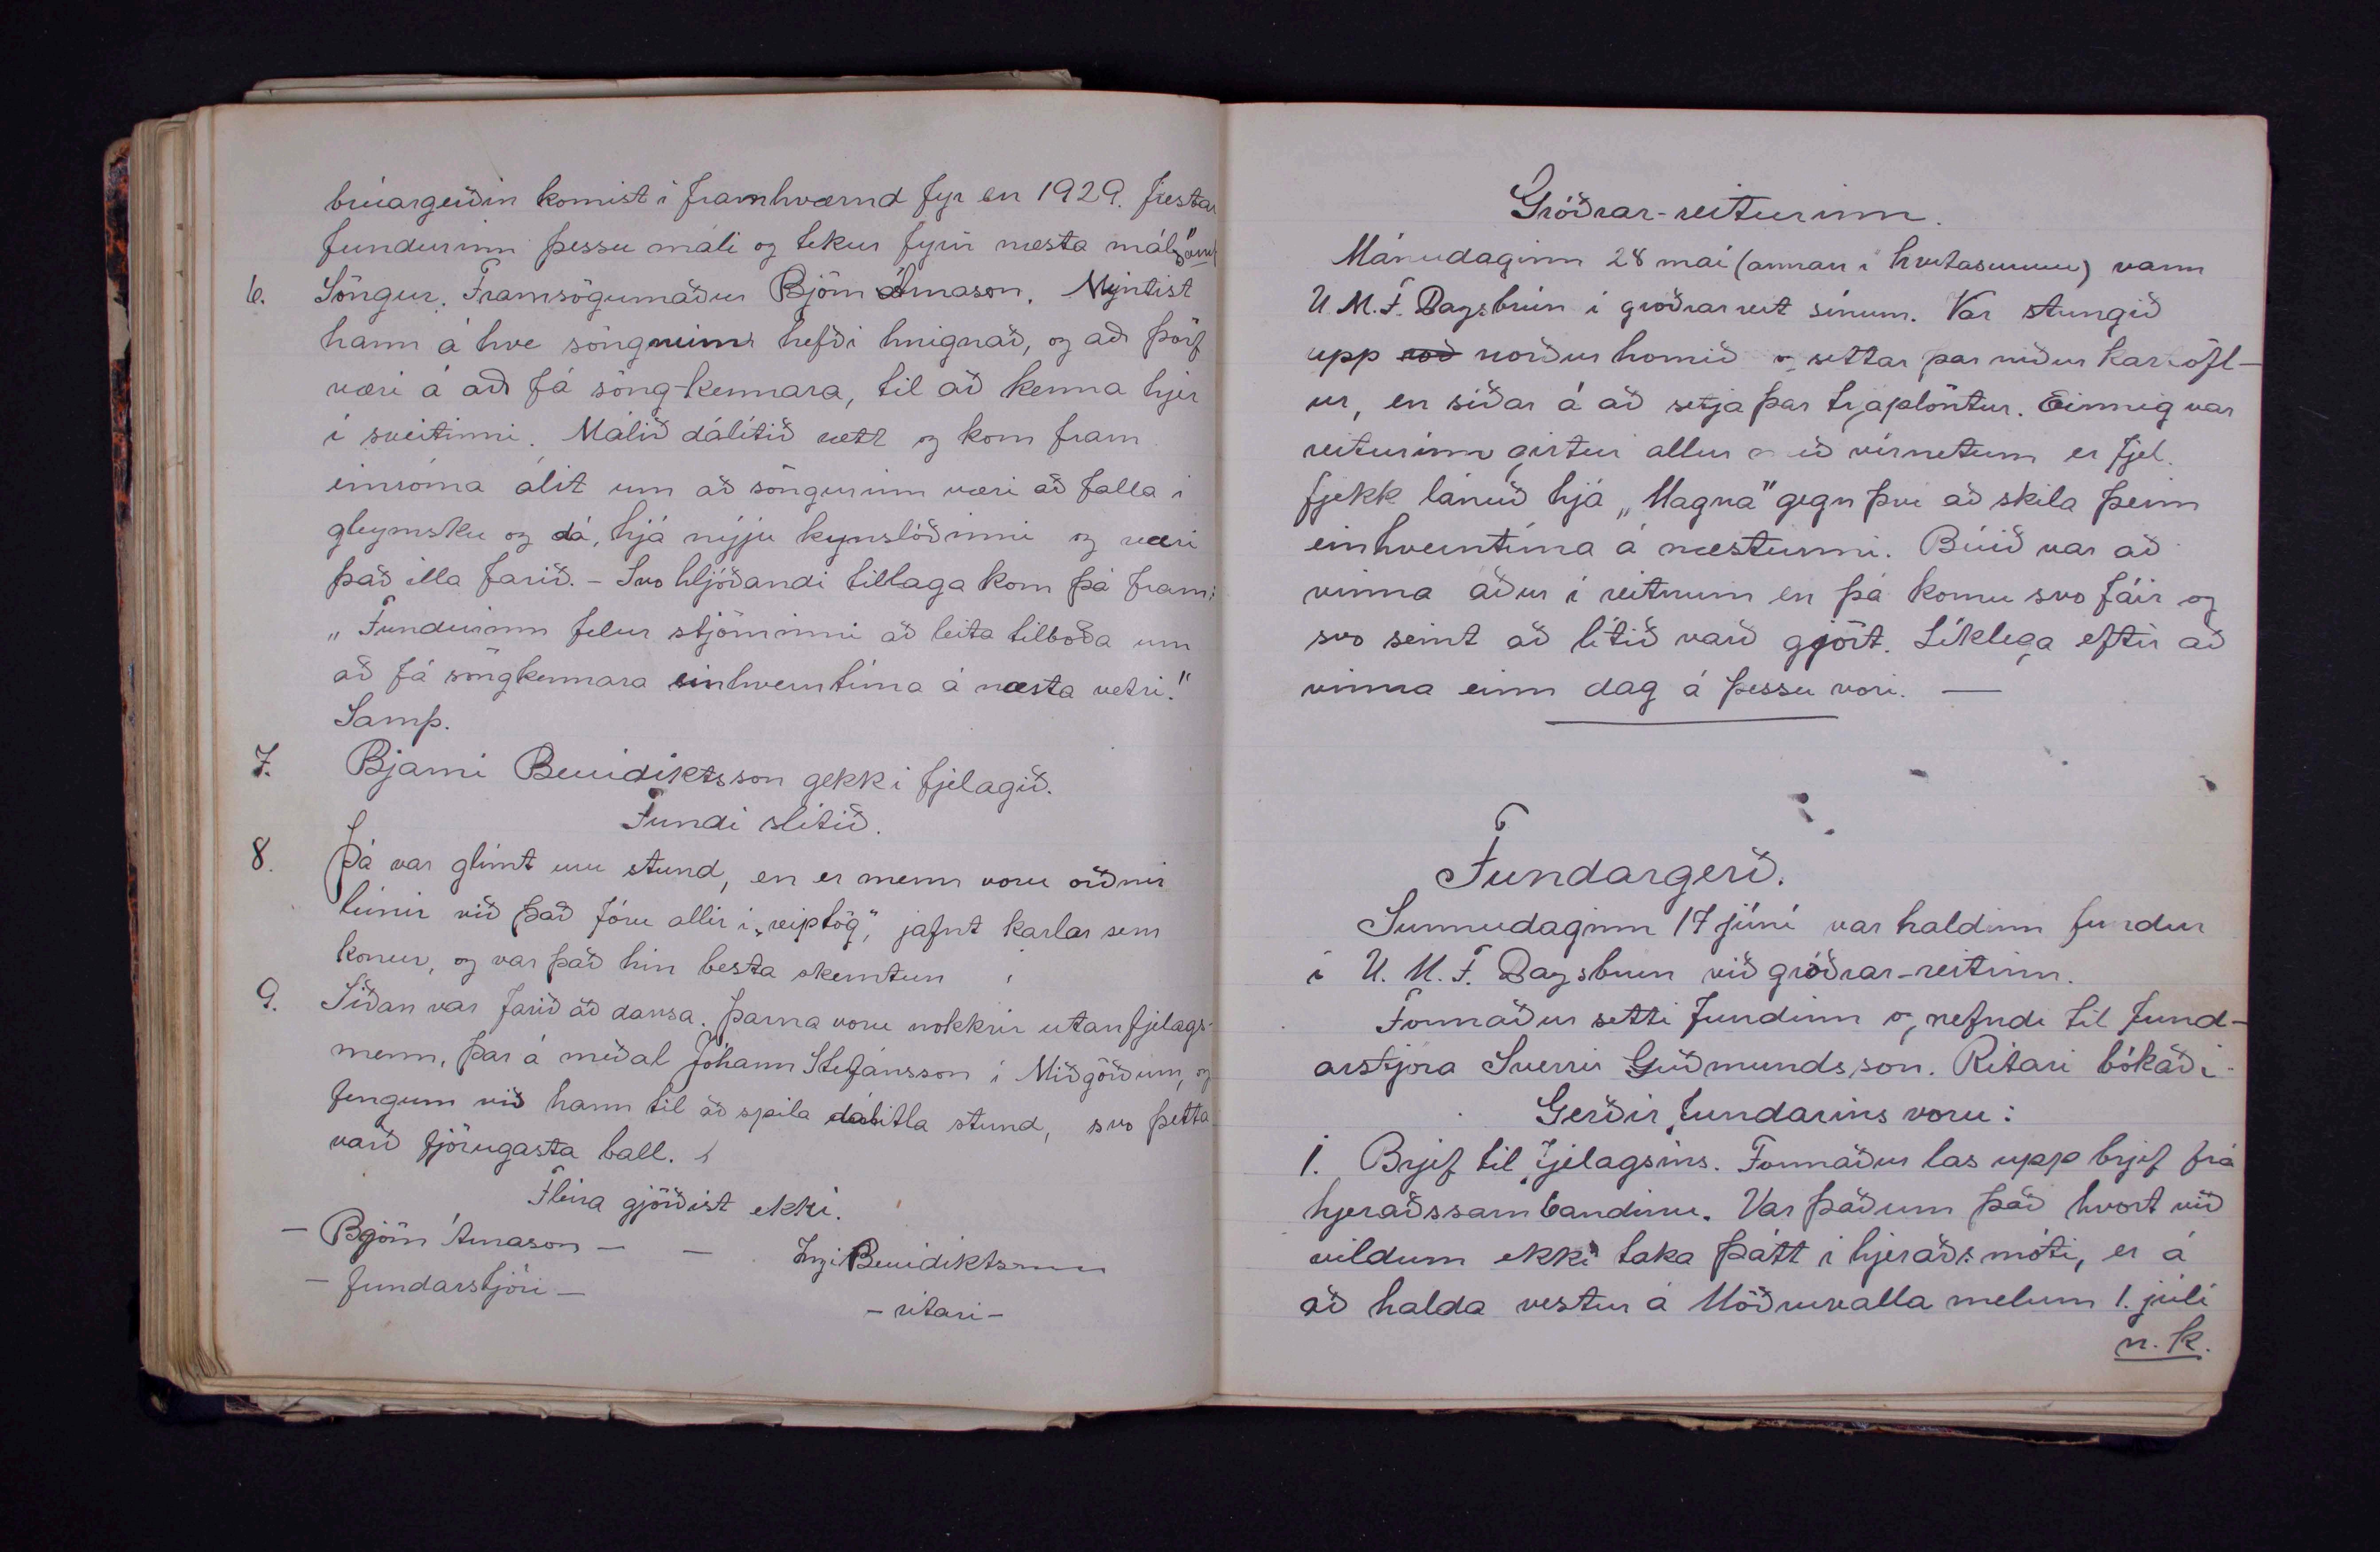 brúargerðin komist í framhværnd fyr en 1929. frestar
fundurinn þessu máli og tekur fyrir næsta mál,
6. Söngur. Framsögumaður Björn Árnason. Myntist
hann á hve söngnum hefði hnignað, og að þörf
væri á að fá söng-kennara, til að kenna hjer
í sveitinni. Málið dálítið rætt og kom fram
einróma álit um að söngurinn væri að falla í
gleymsku og dá, hjá nýju kynslóðinni og væri
það illa farið. - Svo hljóðandi tillaga kom þá fram:
„Fundurinn felur stjórninni að leita tilboða um
að fá söngkennara einhverntíma á næsta vetri."
Samþ.
7. Bjarni Benidiktsson gekk í fjelagið.
Fundi slitið.
8. Þá var glímt um stund, en er menn voru orðnir
lúnir við það fóru allir í „reiptög", jafnt karlar sem
konur, og var það hin besta skemtun
9. Síðan var farið að dansa. Þarna voru nokkrir utanfjelags-
menn, þar á meðal Jóhann Stefánsson í Miðgörðum, og
fengum við hann til að spila dálitla stund, svo þetta
varð fjörugasta ball.
Fleira gjörðist ekki.
- Björn Árnason - - Ingi Benidiktsson
- fundarstjóri -
- ritari -
Gróðrar-reiturinn.
Mánudaginn 28 maí (annan í hvítasunnu) vann
U.M.F. Dagsbrún í gróðrarreit sínum. Var stungið
upp norðurhornið og settar þar niður kartöfl-
ur, en síðar á að setja þar trjáplöntur. Einnig var
reiturinn girtur allur með vírnetum er fjel.
fjekk lánuð hjá „Magna" gegn því að skila þeim
einhverntíma á næstunni. Búið var að
vinna áður í reitnum en þá komu svo fáir og
svo seint að lítið varð gjört. Líklega eftir að
vinna einn dag á þessu vori. -
Fundargerð.
Sunnudaginn 17 júní var haldinn fundur
í U.M.F. Dagsbrún við gróðrar-reitinn.
Formaður setti fundinn og nefndi til fund-
arstjóra Sverrir Guðmundsson. Ritari bókaði.
Gerðir fundarins voru:
1. Brjef til fjelagsins. Formaður las upp brjef frá
hjeraðssambandinu. Var það um það hvort við
vildum ekki taka þátt í hjeraðsmóti, er á
að halda vestur á Möðruvalla melum 1. júlí
n.k.